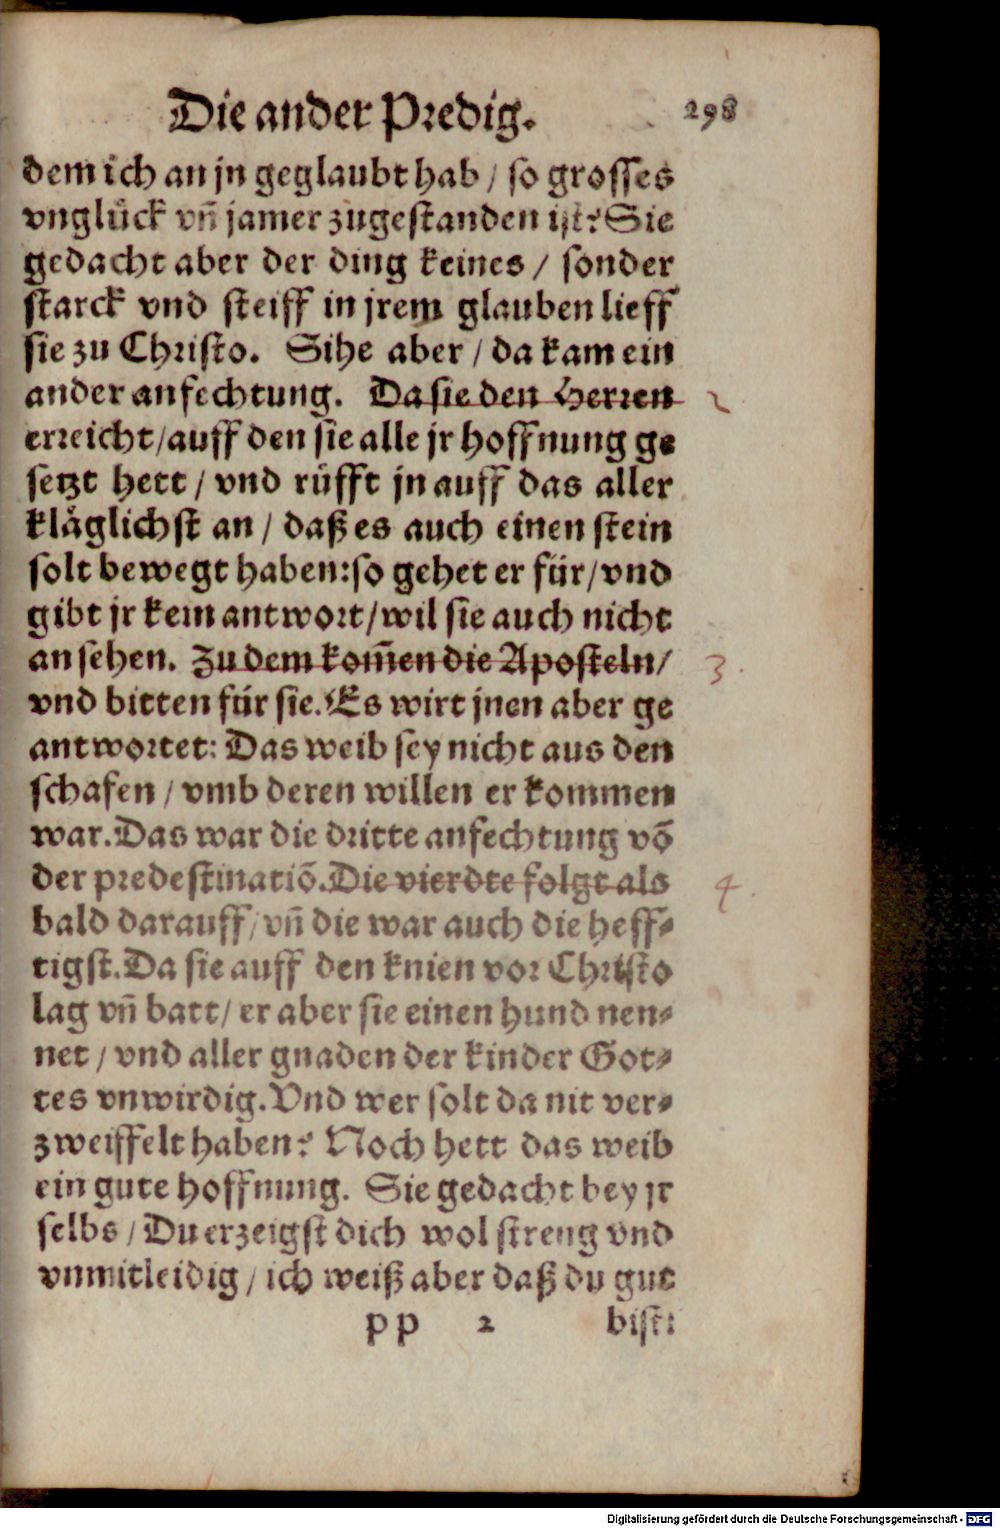 Die ander Predig. 298
dem ich an jn geglaubt hab / so grosses
vnglück vñ jamer zůgestanden ist? Sie
gedacht aber der ding keines / sonder
starck vnd steiff in jrem glauben lieff
sie zu Christo. Sihe aber / da kam ein
ander anfechtung. Da sie den Herren 2
erreicht / auff den sie alle jr hoffnung ge
setzt hett / vnd růfft jn auff das aller
kläglichst an / daß es auch einen stein
solt bewegt haben: so gehet er für / vnd
gibt jr kein antwort / wil sie auch nicht
an sehen. Zu dem kom̃en die Aposteln / 3.
vnd bitten für sie. Es wirt jnen aber ge
antwortet: Das weib sey nicht aus den
schafen / vmb deren willen er kommen
war. Das war die dritte anfechtung võ
der predestinatiõ. Die vierdte folgt als 4.
bald darauff / vñ die war auch die heff⸗
tigst. Da sie auff den knien vor Christo
lag vñ batt / er aber sie einen hund nen⸗
net / vnd aller gnaden der kinder Got⸗
tes vnwirdig. Vnd wer solt da nit ver⸗
zweiffelt haben? Noch hett das weib
ein gute hoffnung. Sie gedacht bey jr
selbs / Du erzeigst dich wol streng vnd
vnmitleidig / ich weiß aber daß du gut
pp 2 bist:
Digitalisierung gefördert durch die Deutsche Forschungsgemeinschaft - DFG